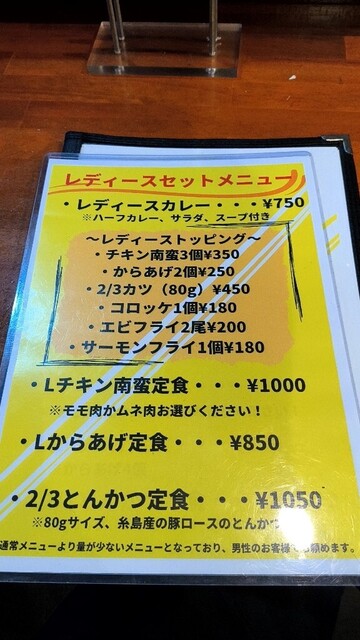 レディースセットメニュー
・レディースカレー・・・¥750
※ハーフカレー、サラダ、スープ付き
～レディーストッピング～
・チキン南蛮3個¥350
・からあげ2個¥250
・2/3カツ（80g）¥450
・コロッケ1個¥180
・エビフライ2尾¥200
・サーモンフライ1個¥180
・Lチキン南蛮定食・・・¥1000
※モモ肉かムネ肉お選びください！
・Lからあげ定食・・・¥850
・2/3とんかつ定食・・・¥1050
※80gサイズ、糸島産の豚ロースのとんかつ
通常メニューより量が少ないメニューとなっており、男性のお客様でも頼めます。